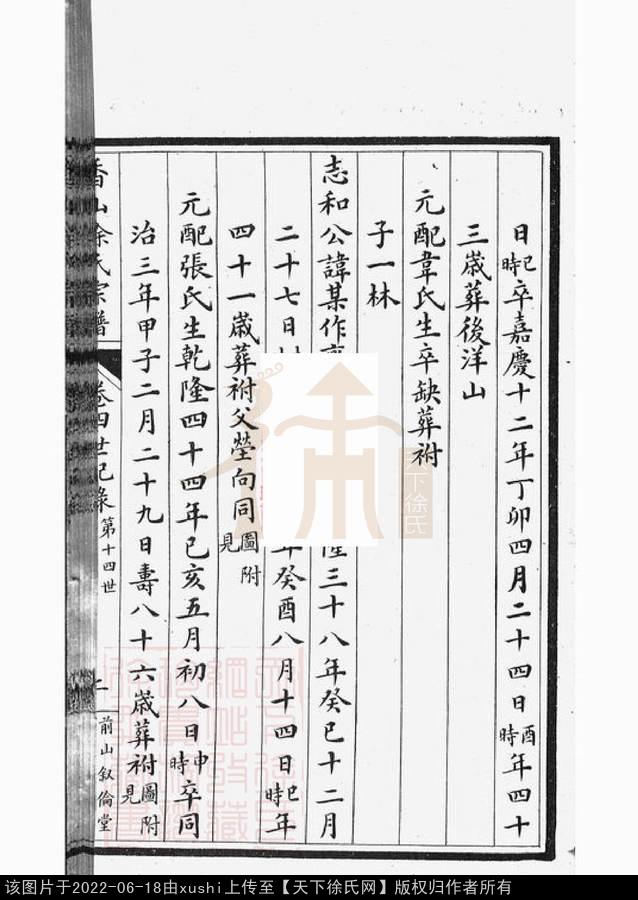 日巳時卒嘉慶十二年丁卯四月二十四日酉時年四十
三歲葬後洋山
元配韋氏生卒缺葬祔
子一林
志和公諱某作 隆三十八年癸巳十二月
二十七日 年癸酉八月十四日巳時年
四十一歲葬祔父塋向同圖附見
元配張氏生乾隆四十四年己亥五月初八日申時卒同
治三年甲子二月二十九日壽八十六歲葬祔圖附見
香山徐氏宗譜 卷四世紀錄 第十四世 前山敘倫堂
天下徐氏
该图片于2022-06-18由xushi上传至【天下徐氏网】版权归作者所有